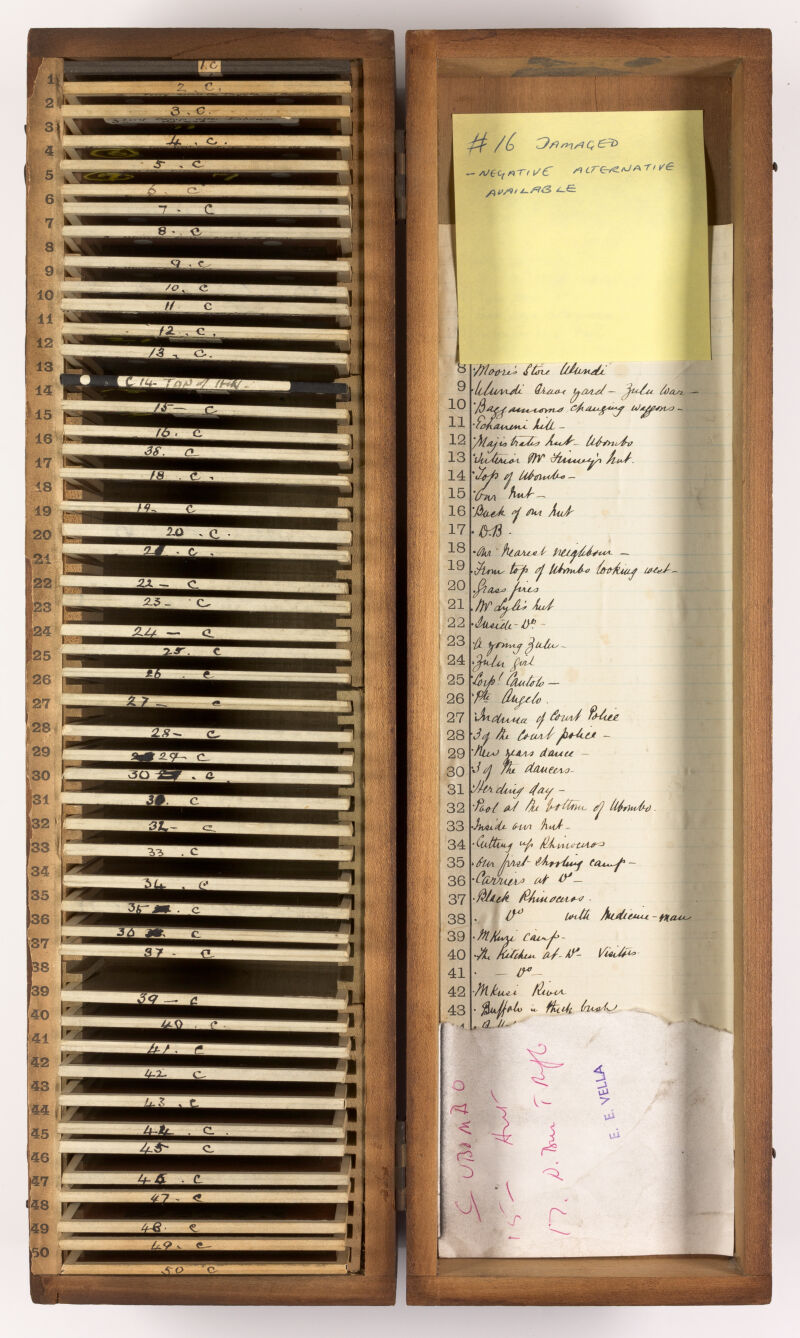 1.C
1
2. C.
2
3. C.
3
4. C.
4
5. C
5
6. C
6
7. C
7
8. C
8
9. C
9
10. C
10
11 C
11
12. C.
12
13. C.
13
C 14. TOP of Hill.
14
15 — C
15
16. C
16
38. C
17
18. C.
18
19. C
19
20. C.
20
21. C.
21
22 — C
22
23 - C
23
24 — C
24
25. C
25
26. C
26
27 — C
27
28 - C
28
29 - C
29
30. C
30
31. C
31
32 - C
32
33. C
33
34. C
34
35. C
35
36. C
36
37. C
37
38
39 — C
39
40. C
40
41. C
41
42 C
42
43. C
43
44. C.
44
45 C
45
46. C
46
47. C
47
48. C
48
49. C
49
50 C
50
# 16 DAMAGED
- NEGATIVE ALTERNATIVE
AVAILABLE
8 Moore's Store Ulundi
9 Ulundi Grave yard - Zulu War -
10 changing waggons -
11 Echaneni hill -
12 Magistrates hut - Ubombo
13 Interior Mr hut.
14 Top of Ubombo -
15 Our hut -
16 Back of our hut
17 D.B.
18 Our nearest neighbour -
19 From top of Ubombo looking west -
20 Grass fires
21 Mr Lyle's hut
22 Inside - Do -
23 A young Zulu -
24 Zulu girl
25 Corpl. —
26 Pte Angelo.
27 Induna of Court Police
28 3 of the Court police -
29 New years dance -
30 3 of the dancers -
31 Herding day -
32 Pool at the bottom of Ubombo.
33 Inside our hut -
34 Cutting up Rhinoceros
35 Our first shooting camp -
36 Carriers at Do -
37 Black Rhinoceros.
38 Do with Medicine-man
39 Mkuzi Camp -
40 The Kitchen at - Do - Visitors
41 — Do —
42 Mkusi River
43 Buffalo in thick bush
UBOMBO
15 — Hut
17.
E. E. VELLA